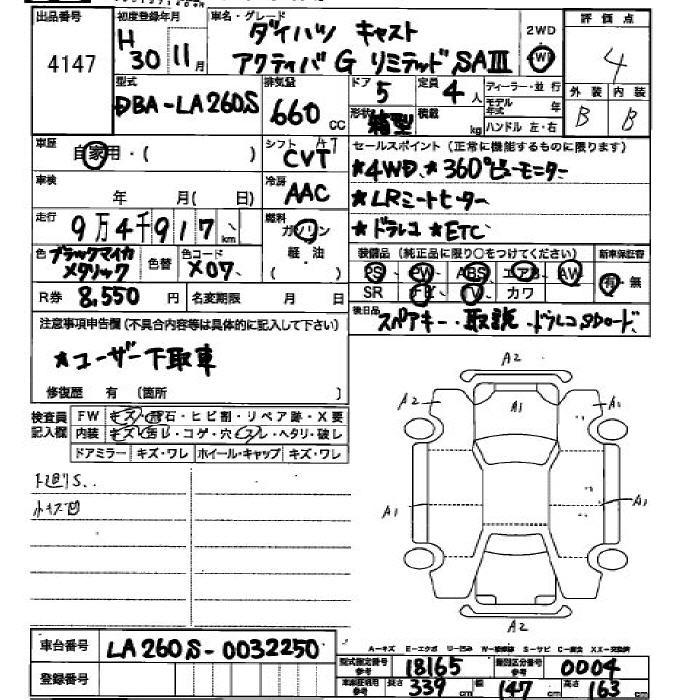 出品番号
4147
初度登録年月
H
30 11 月
車名・グレード
ダイハツ キャスト
アクティバ G リミテッド SAⅢ
2WD
4WD
評価点
4
外装 内装
B B
型式
DBA-LA260S
排気量
660 cc
ドア
5
形状
箱型
定員
4 人
積載
kg
ディーラー・並行
モデル年式 年
ハンドル 左・右
車歴
自家用・( )
シフト AT
CVT
セールスポイント(正常に機能するものに限ります)
★4WD ★360°ビューモニター
★LRシートヒーター
★ドラレコ ★ETC
車検
年 月( 日)
冷房
AAC
走行
9万4千917 km
燃料
ガソリン
軽・油
( )
色
ブラックマイカ
メタリック
色替
色コード
X07
装備品(純正品に限り○をつけてください)
新車保証書
PS、PW、ABS、エアB、AW
SR ナビ、TV、カワ
有・無
R券 8,550 円
名変期限 月 日
後日品
スペアキー・取説・ドラレコSDカード
注意事項申告欄(不具合内容等は具体的に記入して下さい)
★ユーザー下取車
修復歴 有(箇所 )
検査員記入欄
FW キズ・飛石・ヒビ割・リペア跡・X要
内装 キズ・汚レ・コゲ・穴・スレ・ヘタリ・破レ
ドアミラー キズ・ワレ ホイール・キャップ キズ・ワレ
小キズ凹
A2
A2
A1
A1
A1
A1
A2
車台番号
LA260S-0032250
登録番号
A-キズ E-エクボ U-凹み W-補修跡 S-サビ C-腐食 XX-交換済
型式指定番号
参考
18165
類別区分番号
参考
0004
車車証明用
参考
長さ 339 cm 幅 147 cm 高さ 163 cm